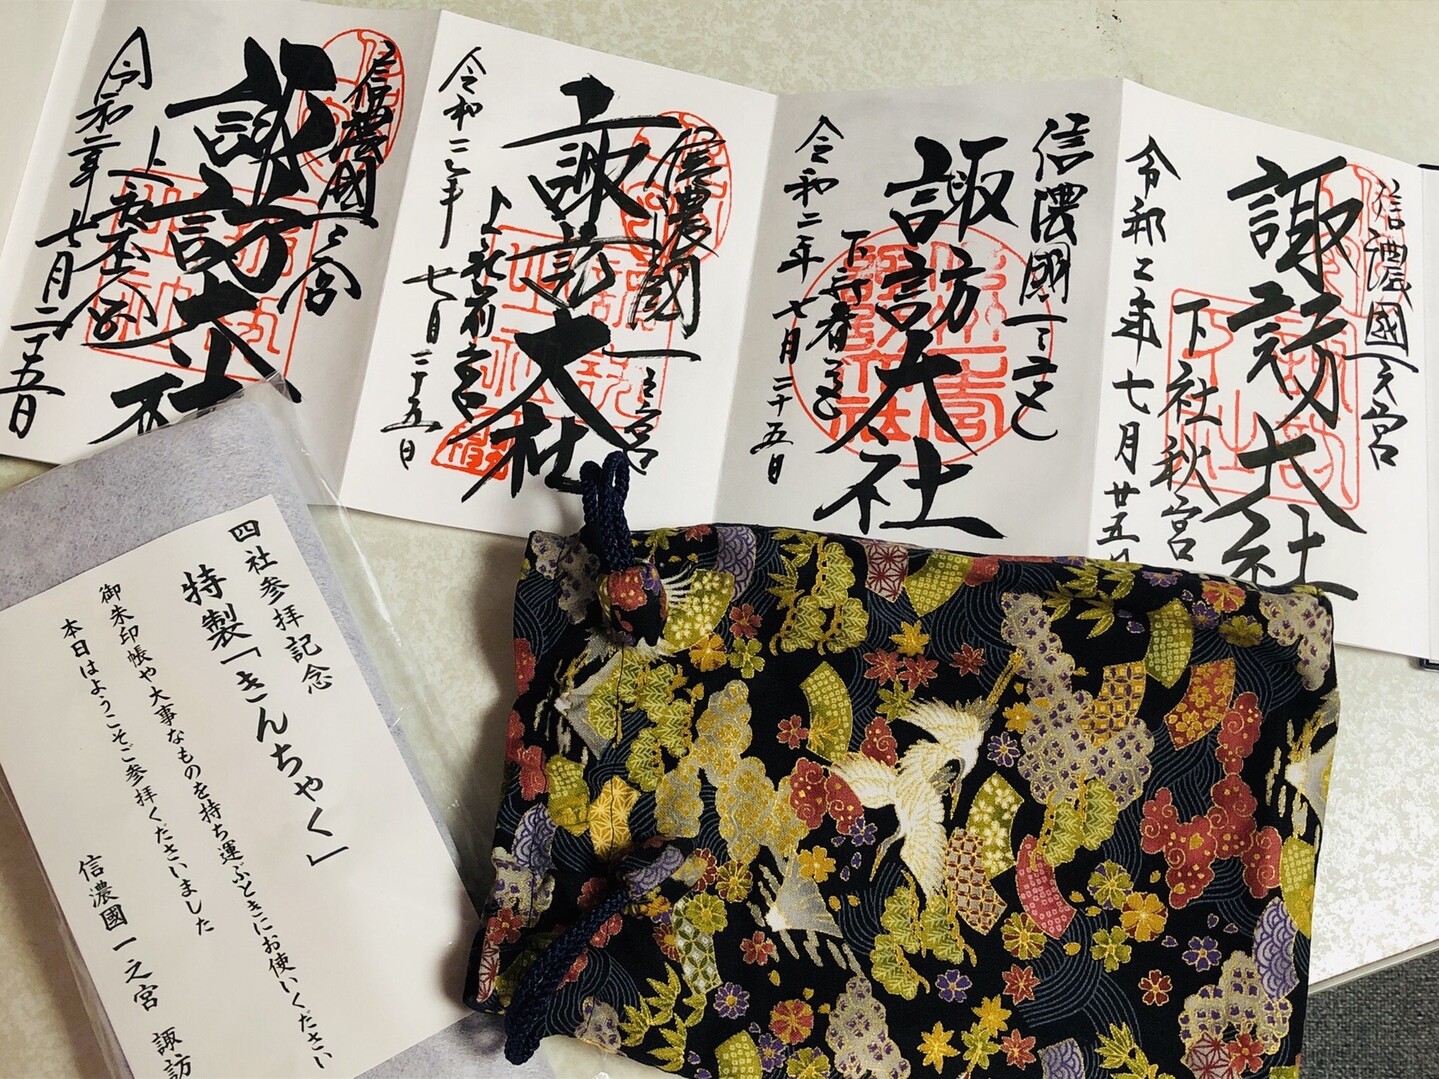 信濃國一之宮
諏訪大社
下社秋宮
令和二年七月廿五日
信濃國一之宮
諏訪大社
下社春宮
令和二年七月二十五日
信濃國一之宮
諏訪大社
上社前宮
令和二年七月二十五日
信濃國一之宮
諏訪大社
上社本宮
令和二年七月二十五日
四社参拝記念
特製「きんちゃく」
御朱印帳や大事なものを持ち運ぶときにお使いください
本日はようこそご参拝くださいました
信濃國一之宮 諏訪